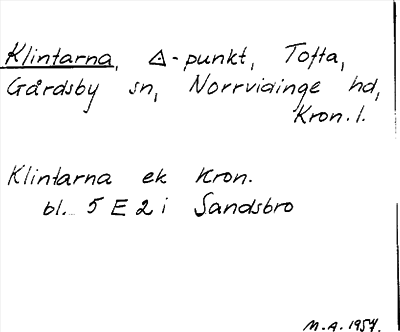 Klintarna, △-punkt, Tofta,
Gårdsby sn, Norrvidinge hd,
Kron. l.
Klintarna ek Kron.
bl. 5 E 2 i Sandsbro
M.A. 1954.